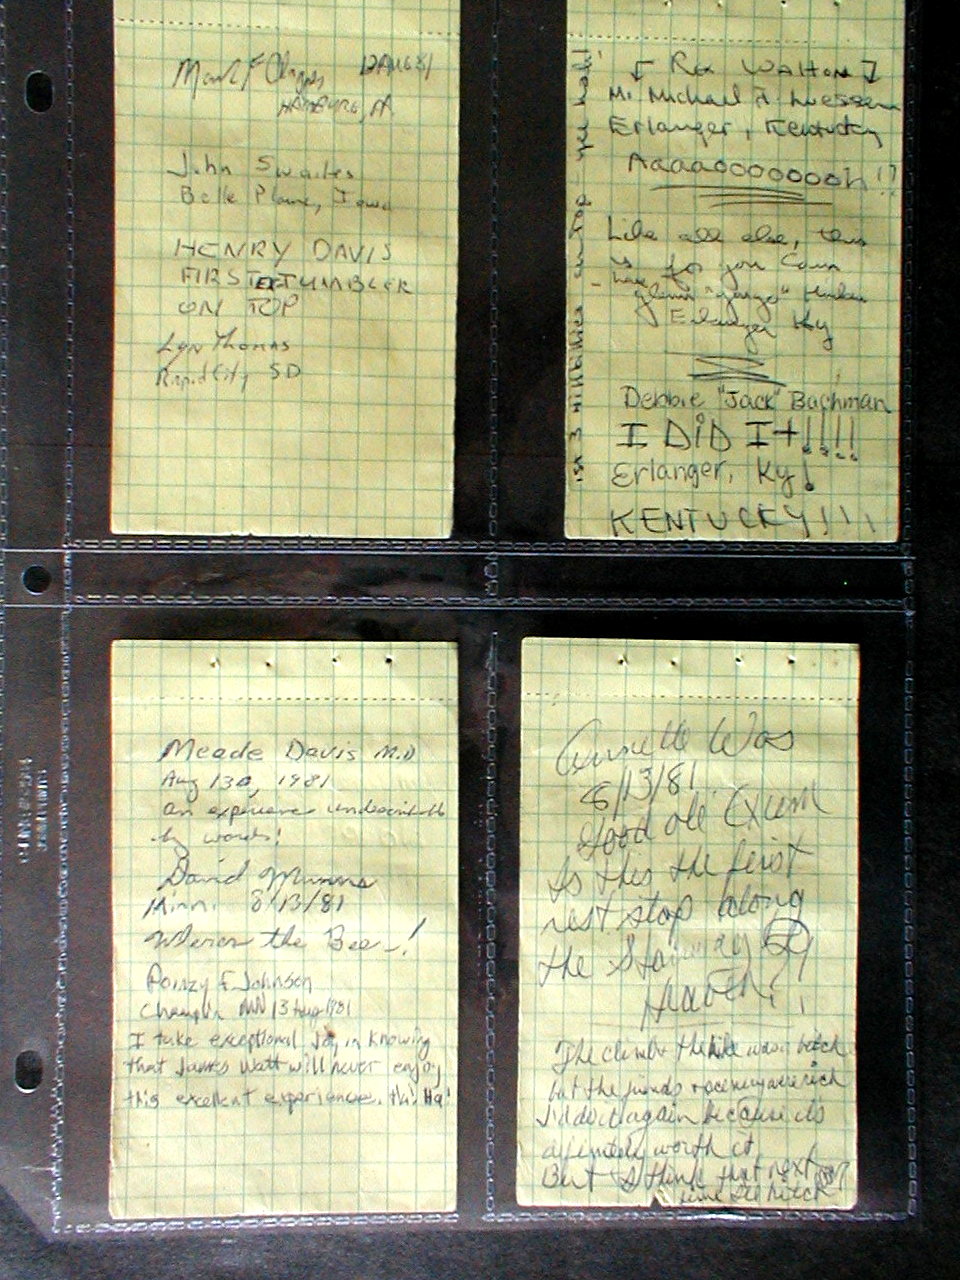 Mark F 12 AUG 81
HAMBURG, PA
John Swailes
Belle Plaine, Iowa
HENRY DAVIS
FIRST TUMBLER
ON TOP
Lyn Thomas
Rapid City SD
Rex Walton
Mr. Michael
Erlanger, Kentucky
Aaaaooooooooh!?
Like all else, this
is for you Coun
"gonzo"
Erlanger Ky
Debbie "Jack" Bachman
I DiD It!!!!
Erlanger, Ky!
KENTUCKY!!!
3 hillbillies on top - yee hah!
Meade Davis M.D
Aug 13, 1981
an experience undescribable
by words!
David
Minn. 8/13/81
Where's the Beer!
Poinzy F Johnson
Champlin MN 13 Aug 1981
I take exceptional joy in knowing
that James Watt will never enjoy
this excellent experience. Ha! Ha!
Annette Was
8/13/81
Good ole Exum
Is this the first
rest stop along
the Stairway to
Heaven?
The climb & the hike was a bitch
but the friends & scenery were rich
I'd do it again because it's
definitely worth it,
But I think that next
time I'll hitch